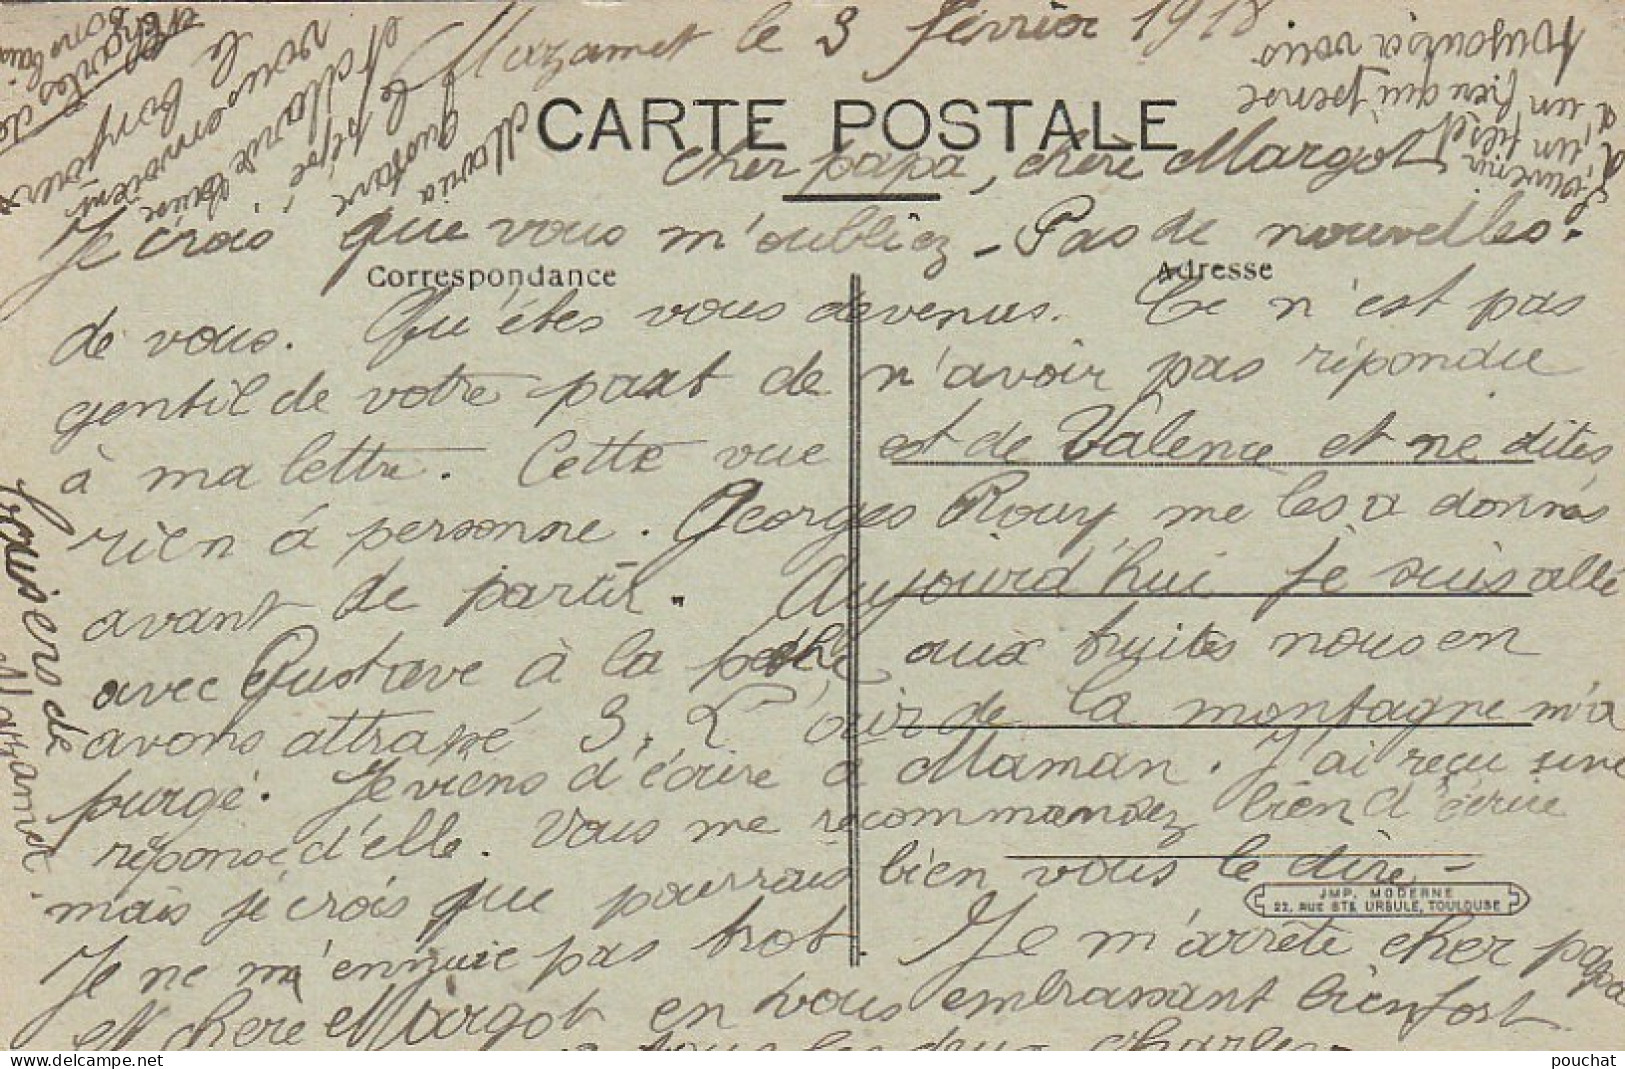 Mazamet le 3 février 1918
CARTE POSTALE
Cher papa, chère Margot
Je crois que vous m'oubliez - Pas de nouvelles.
Correspondance
Adresse
de vous. Qu'êtes vous devenus. Ce n'est pas
gentil de votre part de n'avoir pas répondu
à ma lettre. Cette vue est de Valence et ne dites
rien à personne. Georges Rouy me les a donnés
avant de partir. Aujourd'hui je suis allé
avec Gustave à la pêche aux truites nous en
avons attrapé 3. L'air de la montagne m'a
purgé. Je viens d'écrire à Maman. J'ai reçu une
réponse d'elle. Vous me recommandez bien d'écrire
mais je crois que pourrais bien vous le dire -
JMP. MODERNE
22, RUE STE URSULE, TOULOUSE
Je ne m'ennuie pas trot. Je m'arrête cher papa
et chère Margot en vous embrassant bien fort
tous les deux Charles
Souvenir
d'un fils et
à un frère qui pense
toujours à vous
Maria
Gustave
et le pépé
et
vous envoient
le bonjour
Charles